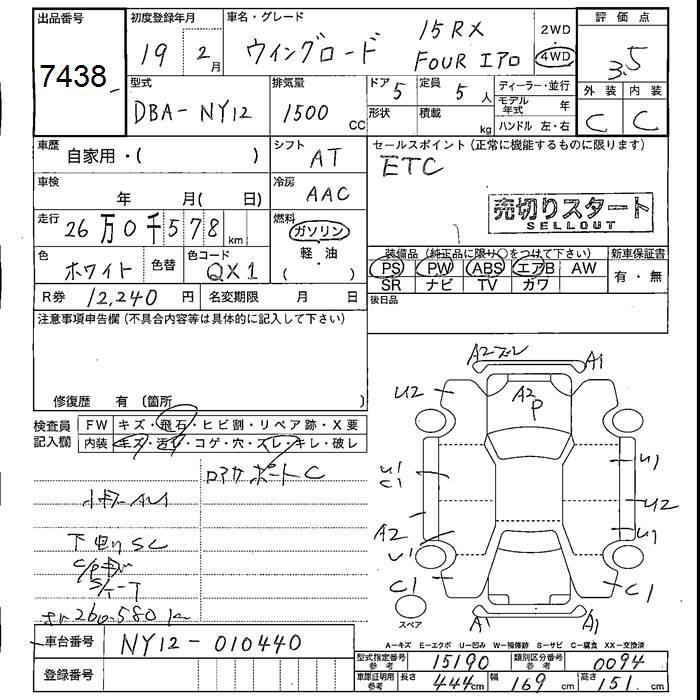 出品番号
7438
初度登録年月
19 年 2 月
車名・グレード
ウイングロード
15RX
FOUR エアロ
2WD
4WD
評価点
3.5
外装 内装
C C
型式
DBA-NY12
排気量
1500 CC
ドア 5
形状
定員 5 人
積載 kg
ディーラー・並行
モデル年式 年
ハンドル 左・右
車歴
自家用・( )
シフト
AT
セールスポイント(正常に機能するものに限ります)
ETC
売切りスタート
SELLOUT
車検
年 月( 日)
冷房
AAC
走行
26万0千578 km
燃料
ガソリン
軽・油
( )
色
ホワイト
色替
色コード
QX1
装備品(純正品に限り○をつけて下さい)
PS PW ABS エアB AW
SR ナビ TV カワ
新車保証書
有・無
R券 12,240 円
名変期限 月 日
後日品
注意事項申告欄(不具合内容等は具体的に記入して下さい)
修復歴 有(箇所 )
検査員記入欄
FW キズ・飛石・ヒビ割・リペア跡・X要
内装 キズ・汚れ・コゲ・穴・スレ・キレ・破レ
C
SC
260.580
A2 ズレ A1
U2 A2 P
U1 C1 U1
U2
A2 U1 U1
C1 C1
A1 A1
スペア
A-キズ E-エクボ U-凹み W-補修跡 S-サビ C-腐食 XX-交換済
車台番号 NY12-010440
登録番号
型式指定番号 参考 15190
類別区分番号 参考 0094
車庫証明用 参考 長さ 444 cm 幅 169 cm 高さ 151 cm